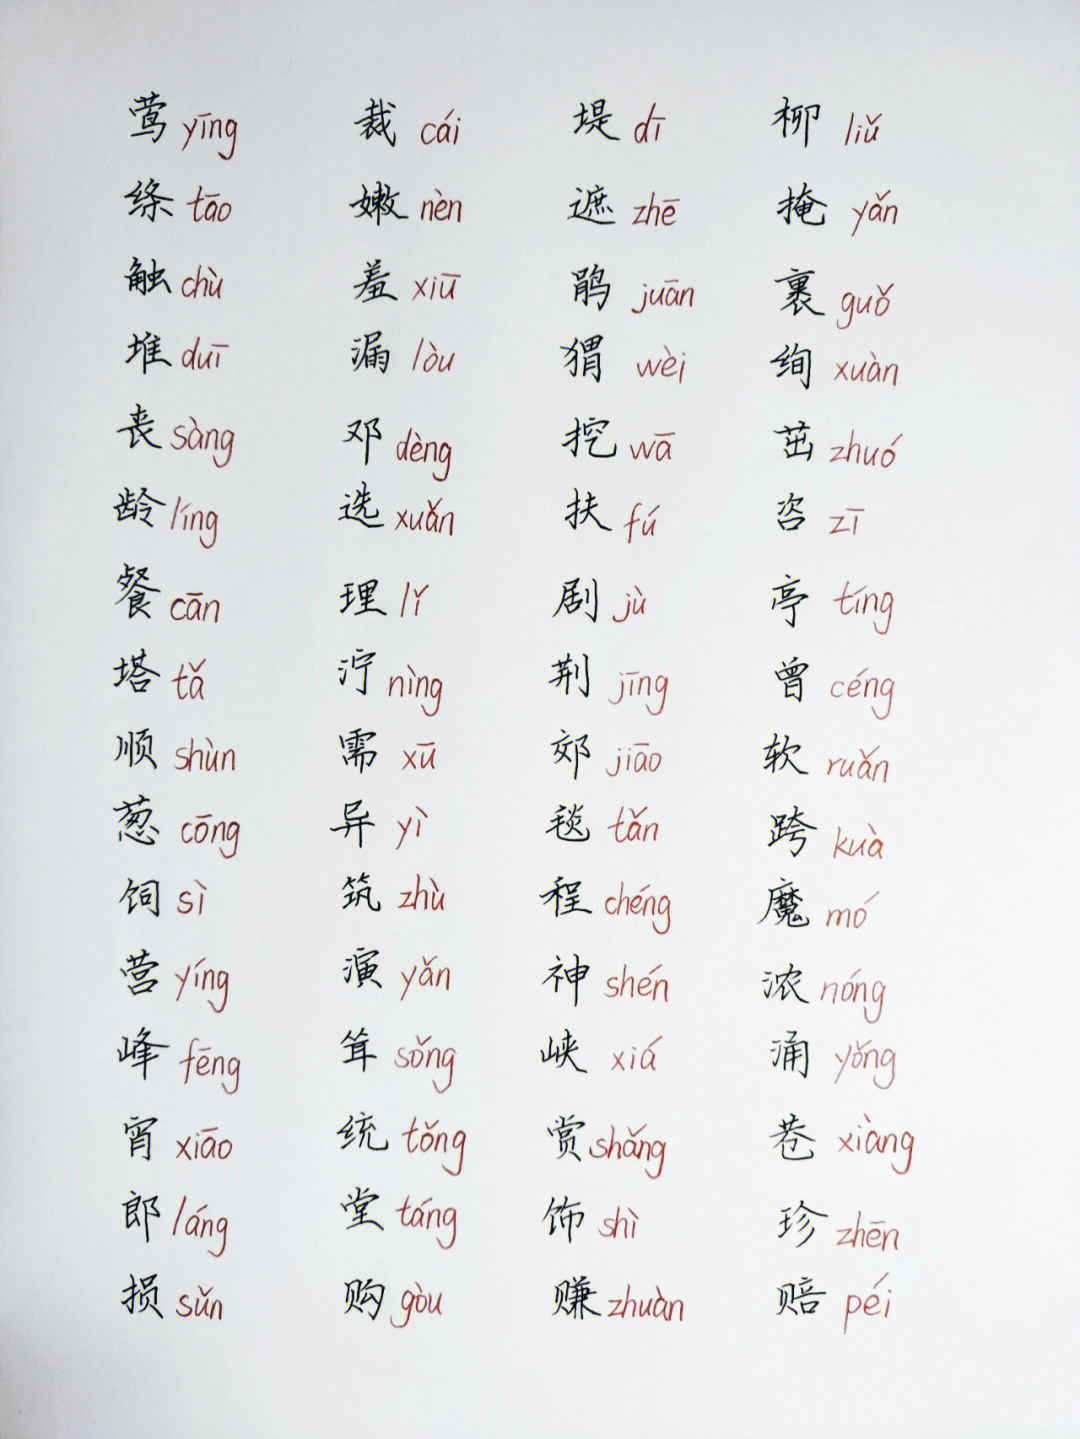 莺 yīng 裁 cái 堤 dī 柳 liǔ
绦 tāo 嫩 nèn 遮 zhē 掩 yǎn
触 chù 羞 xiū 鹃 juān 裹 guǒ
堆 duī 漏 lòu 猬 wèi 绚 xuàn
丧 sàng 邓 dèng 挖 wā 茁 zhuó
龄 líng 选 xuǎn 扶 fú 咨 zī
餐 cān 理 lǐ 剧 jù 亭 tíng
塔 tǎ 泞 nìng 荆 jīng 曾 céng
顺 shùn 需 xū 郊 jiāo 软 ruǎn
葱 cōng 异 yì 毯 tǎn 跨 kuà
饲 sì 筑 zhù 程 chéng 魔 mó
营 yíng 演 yǎn 神 shén 浓 nóng
峰 fēng 耸 sǒng 峡 xiá 涌 yǒng
宵 xiāo 统 tǒng 赏 shǎng 巷 xiàng
郎 láng 堂 táng 饰 shì 珍 zhēn
损 sǔn 购 gòu 赚 zhuàn 赔 péi